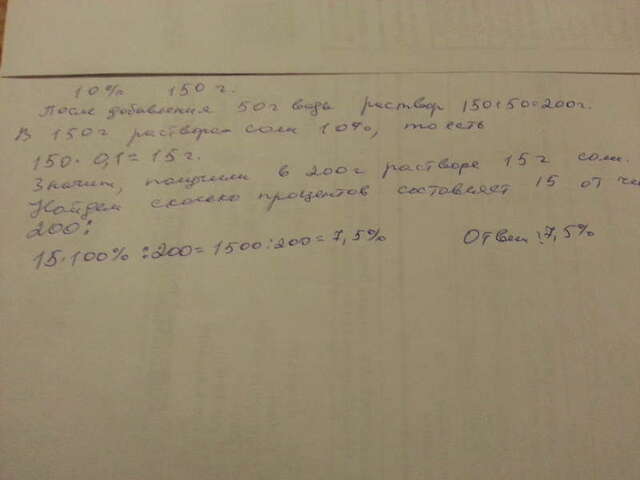 10% 150 г.
После добавления 50 г воды раствор 150+50=200г.
В 150г раствора соли 10%, то есть
150 · 0,1 = 15 г.
Значит, получили в 200г растворе 15 г соли.
Найдем сколько процентов составляет 15 от чи
200:
15·100% :200= 1500:200= 7,5% Ответ: 7,5%